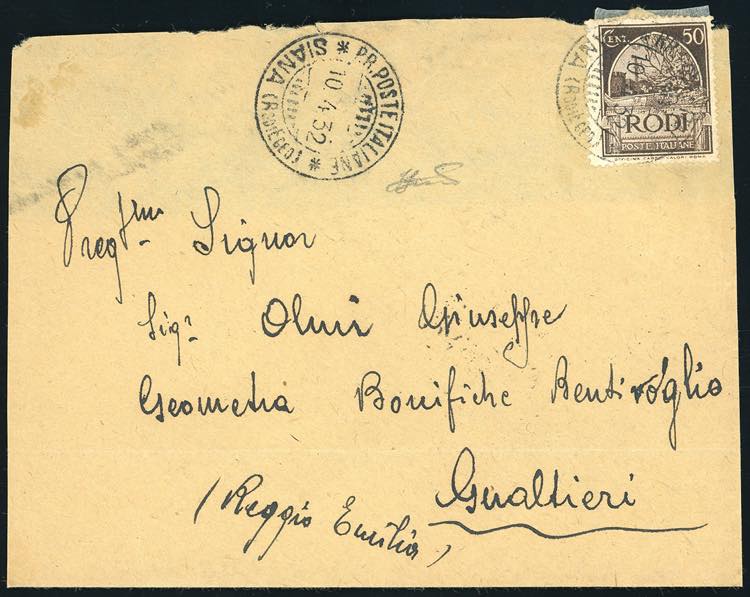 PR. POSTE ITALIANE
* SIANA (RODI EGEO) *
10.4.32
CENT. 50
RODI
POSTE ITALIANE
OFFICINA CARTE VALORI ROMA
Preg.mo Signor
Sig.r Olmi Giuseppe
Geometra Bonifiche Bentivoglio
Gualtieri
(Reggio Emilia)